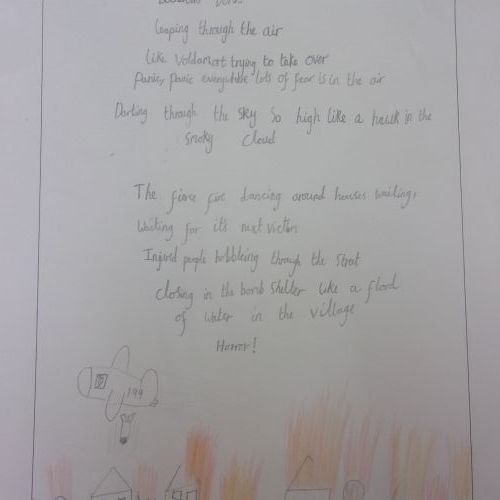 leaping through the air
Like Voldamort trying to take over
Panic, panic everywhere lots of fear is in the air
Darting through the sky so high like a hawk in the
smoky cloud
The fierce fire dancing around houses waiting,
Waiting for it's next victim
Injured people hobbleing through the street
closing in the bomb shelter like a flood
of water in the village
Horror!
199